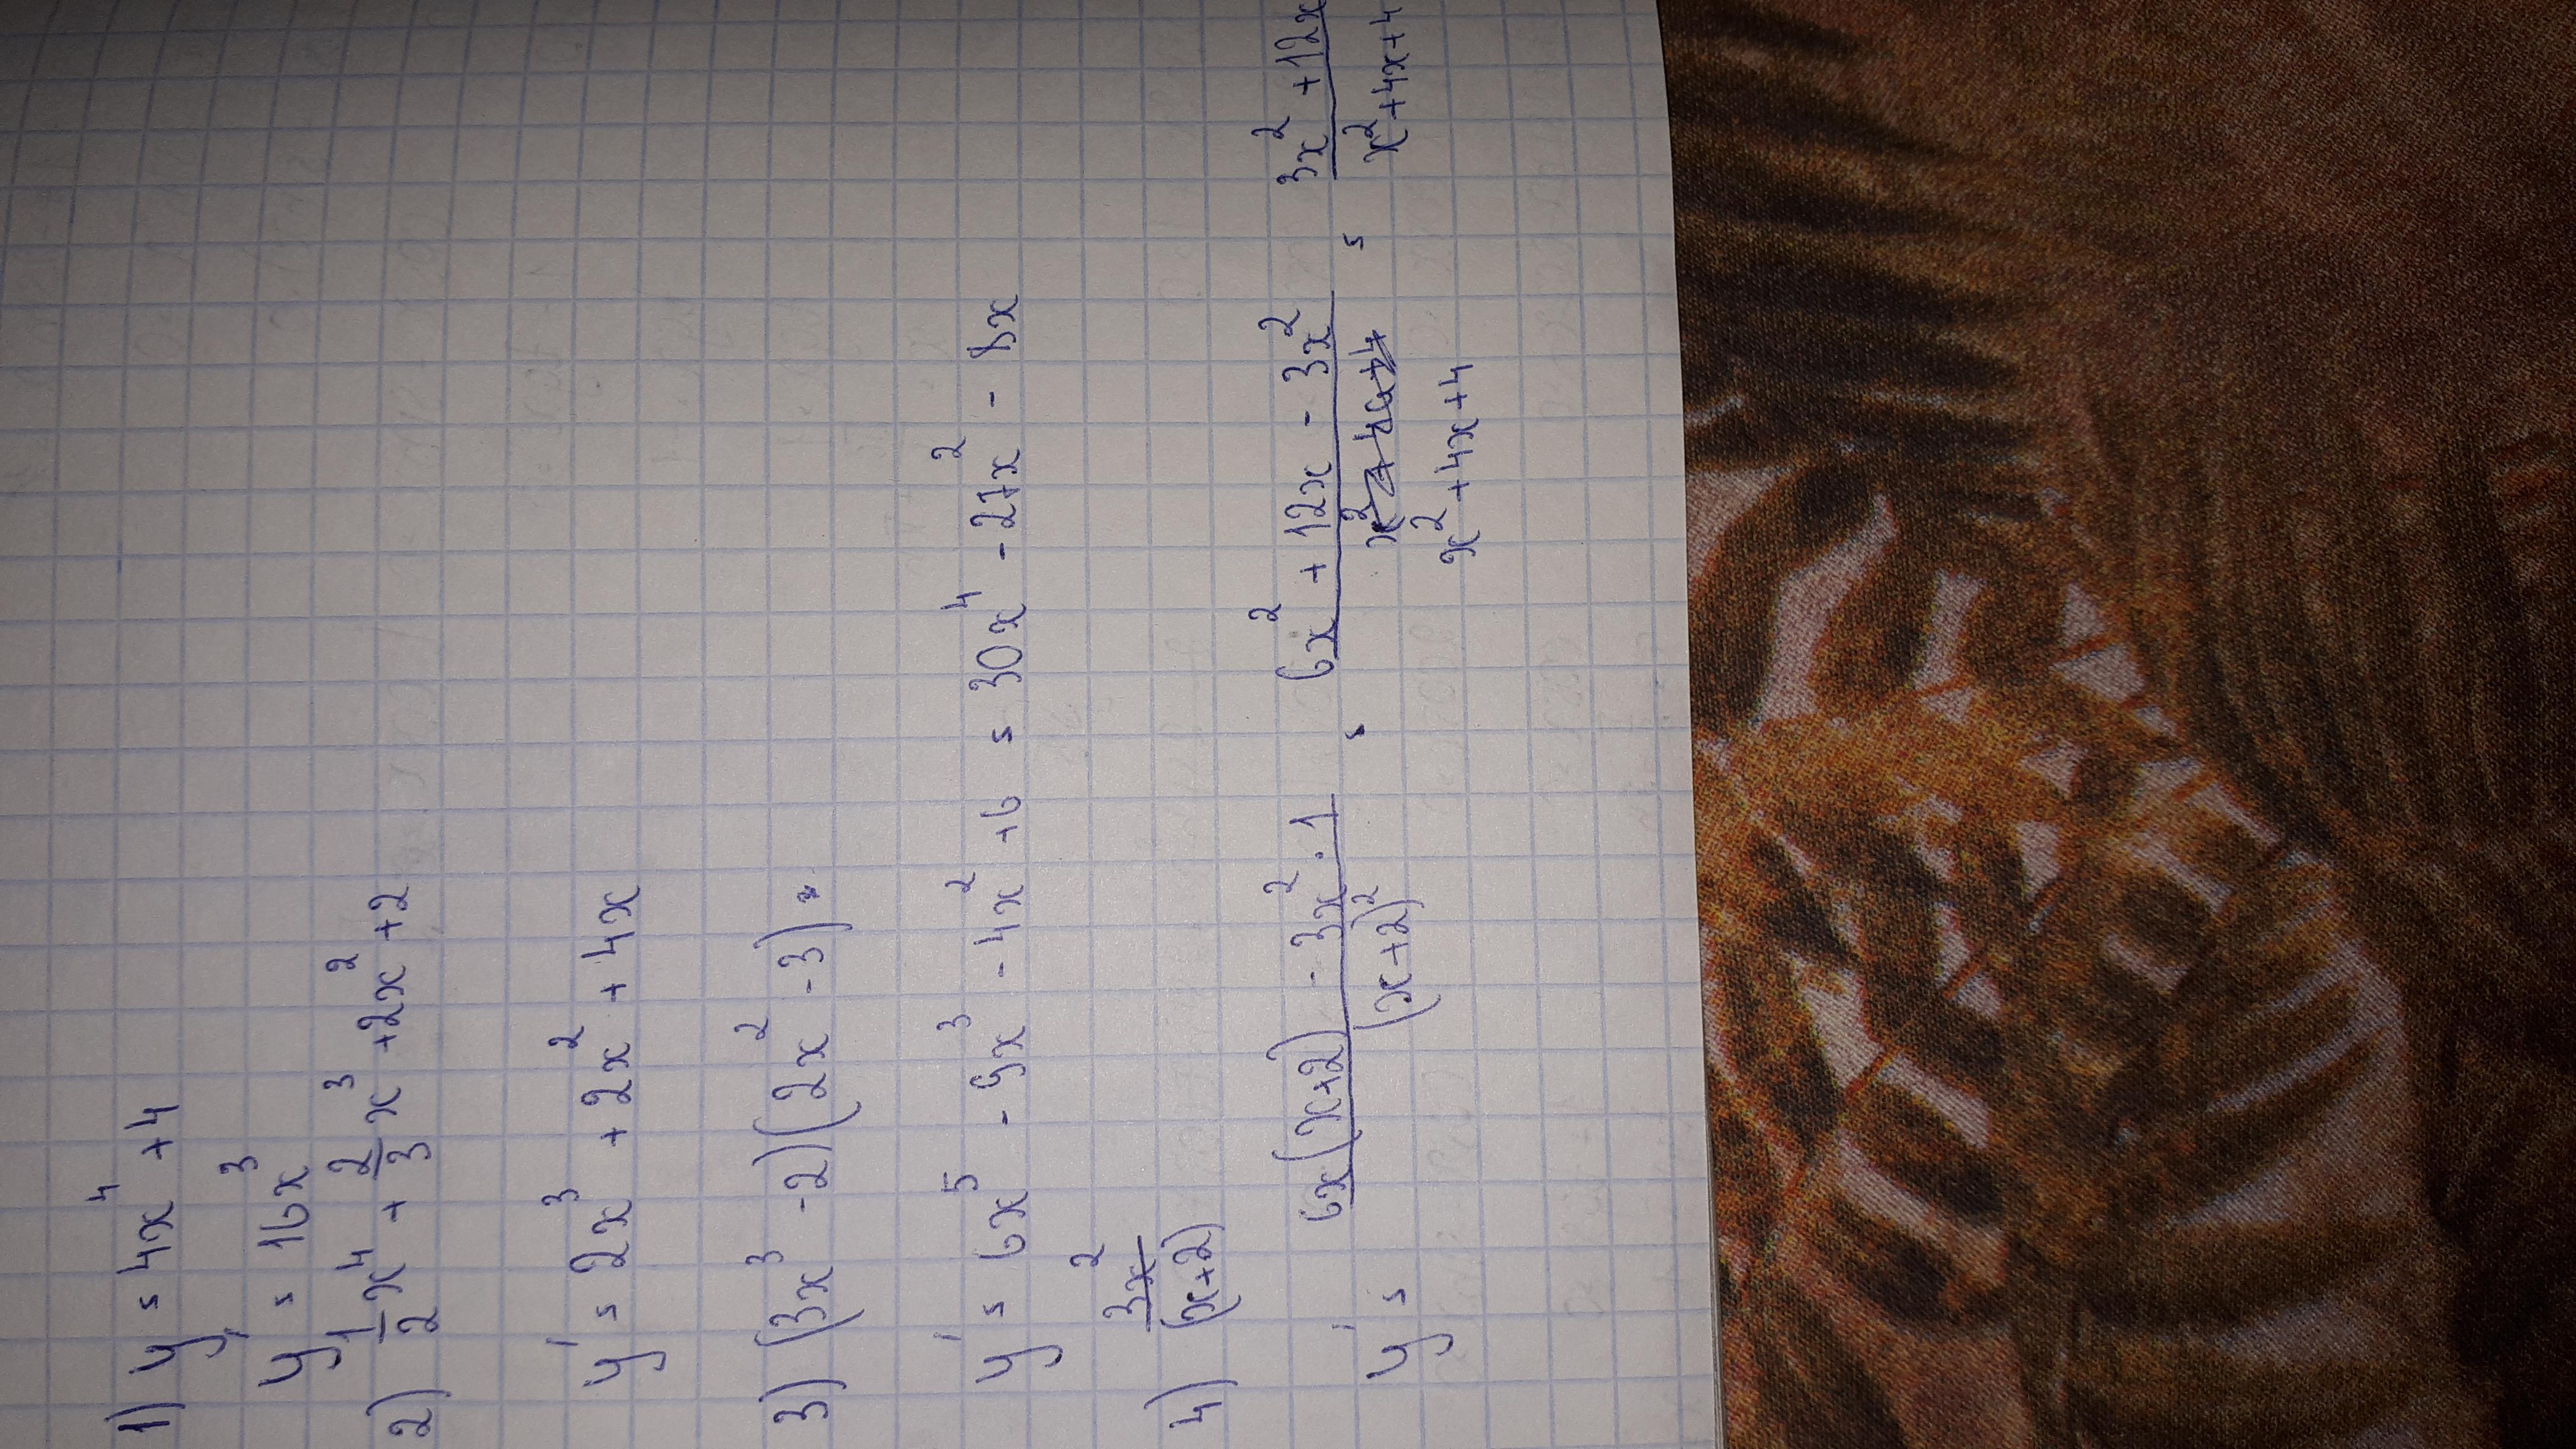 1) y = 4x⁴ + 4
y' = 16x³
2) 1/2 x⁴ + 2/3 x³ + 2x² + 2
y' = 2x³ + 2x² + 4x
3) (3x³ - 2)(2x² - 3)
y' = 6x⁵ - 9x³ - 4x² + 6 = 30x⁴ - 27x² - 8x
4) 3x²/(x+2)
y' = (6x(x+2) - 3x² · 1)/(x+2)² = (6x² + 12x - 3x²)/(x² + 4x + 4) = (3x² + 12x)/(x² + 4x + 4)